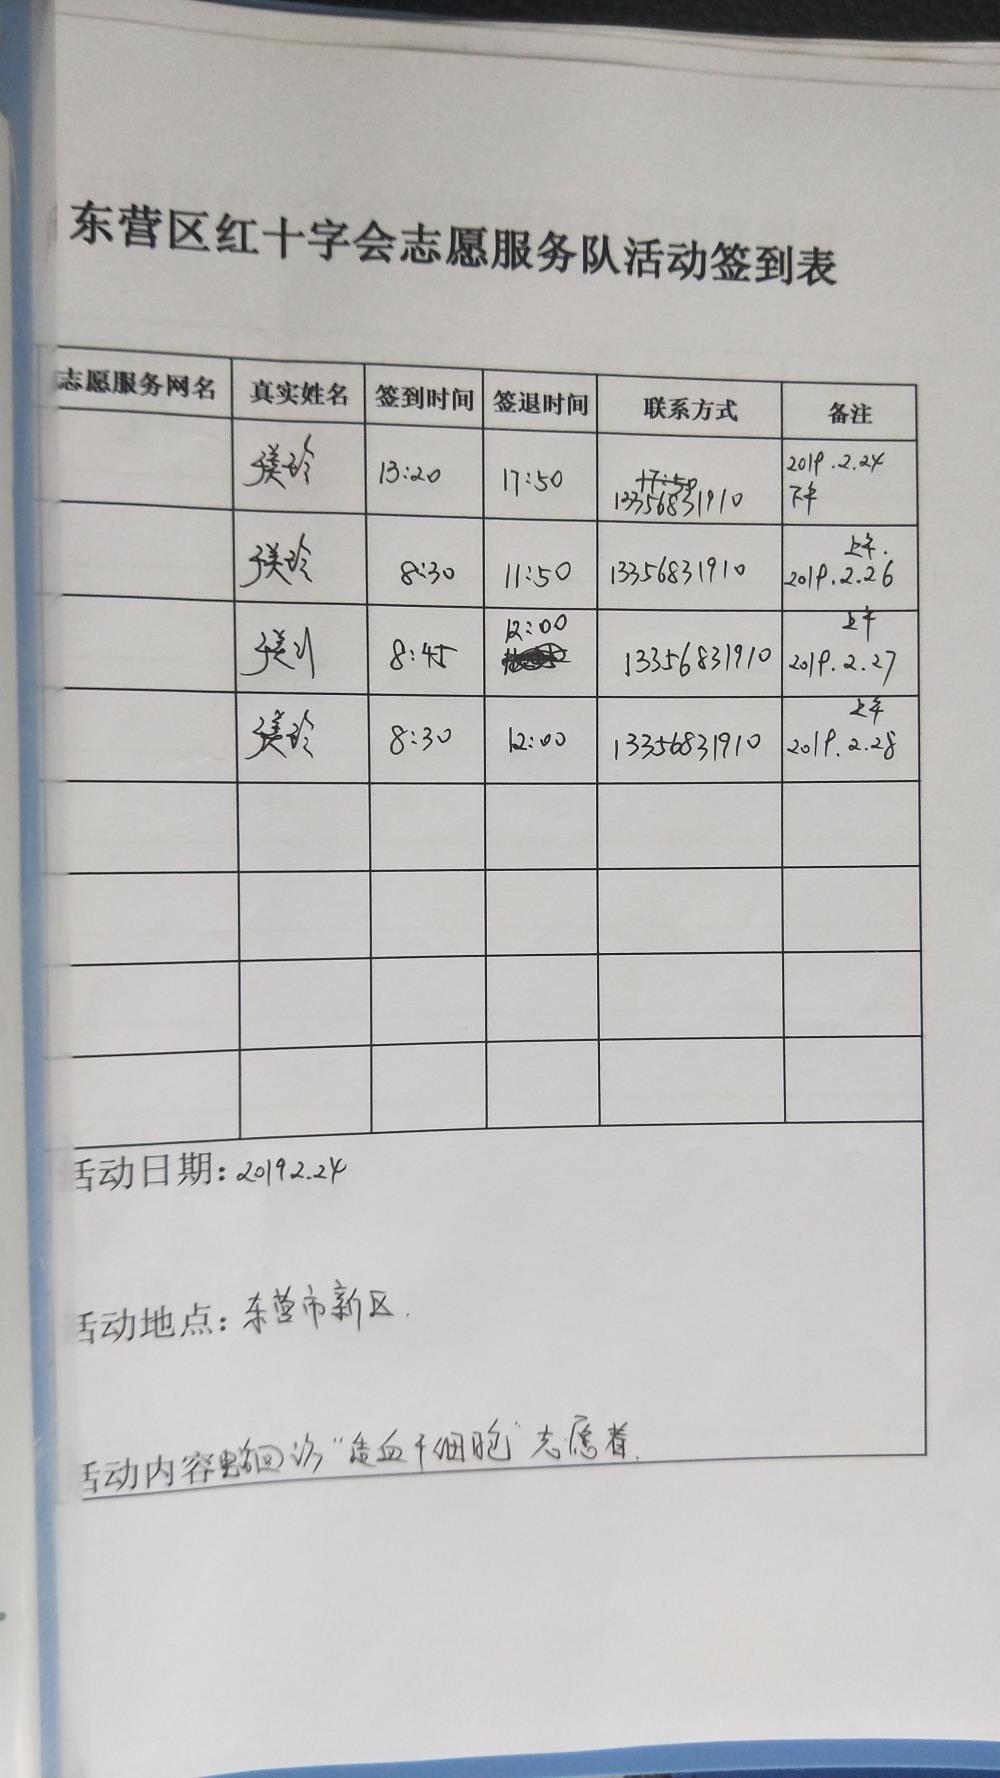 东营区红十字会志愿服务队活动签到表
志愿服务网名 真实姓名 签到时间 签退时间 联系方式 备注
13:20 17:50 17:50 13356831910 2019.2.24 下午
8:30 11:50 13356831910 上午. 2019.2.26
8:45 12:00 13356831910 上午 2019.2.27
8:30 12:00 13356831910 上午 2019.2.28
活动日期: 2019 2.24
活动地点: 东营市新区.
活动内容 回访“造血干细胞”志愿者.